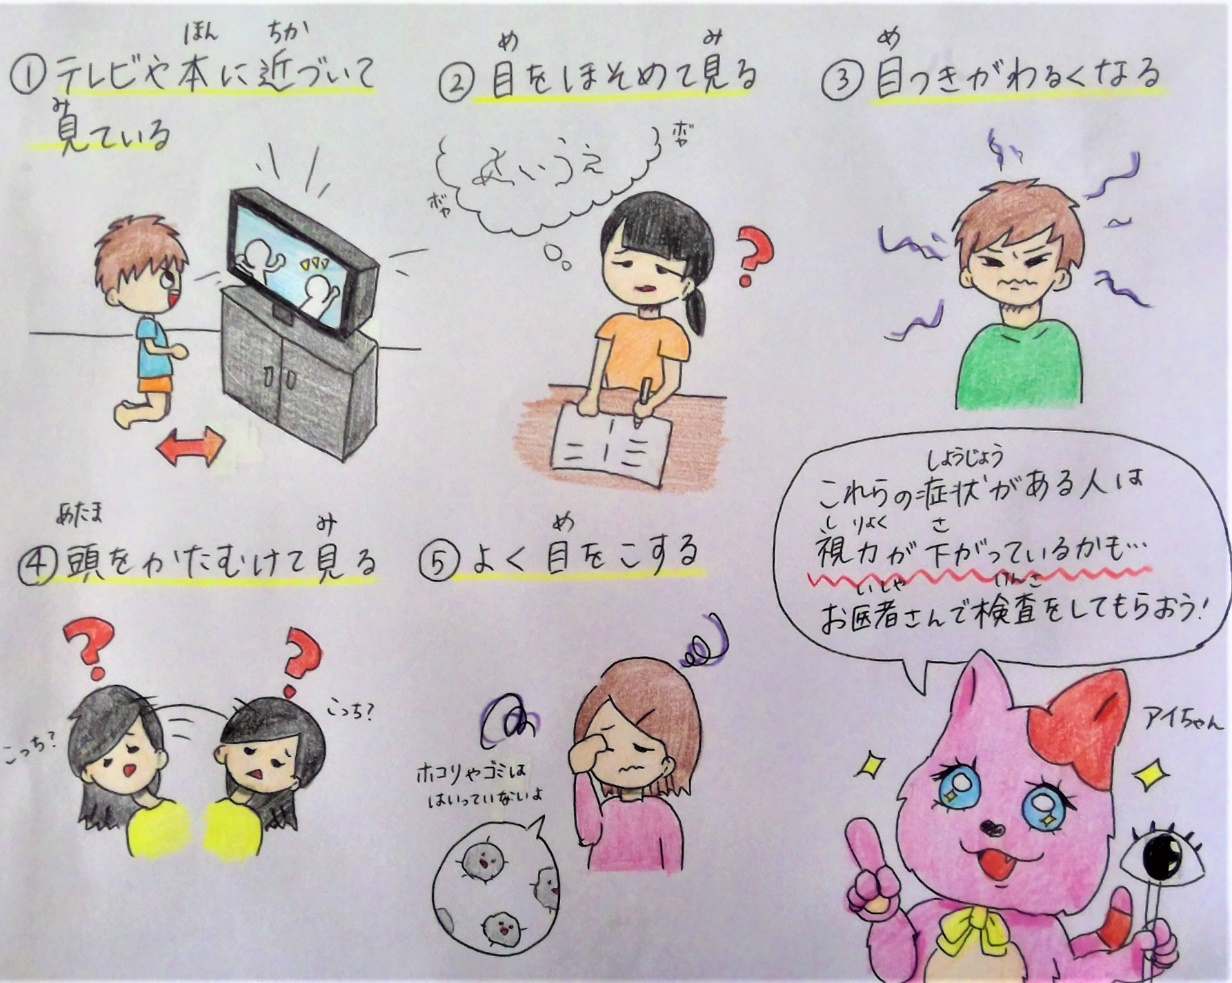 ① テレビや本に近づいて
ほん ちか
見ている
み
② 目をほそめて見る
め み
あいうえ
ボヤ
ボヤ
③ 目つきがわるくなる
め
④ 頭をかたむけて見る
あたま み
こっち?
こっち?
⑤ よく目をこする
め
ホコリやゴミは
はいっていないよ
しょうじょう
これらの症状がある人は
しりょく さ
視力が下がっているかも…
いしゃ けんさ
お医者さんで検査をしてもらおう!
アイちゃん